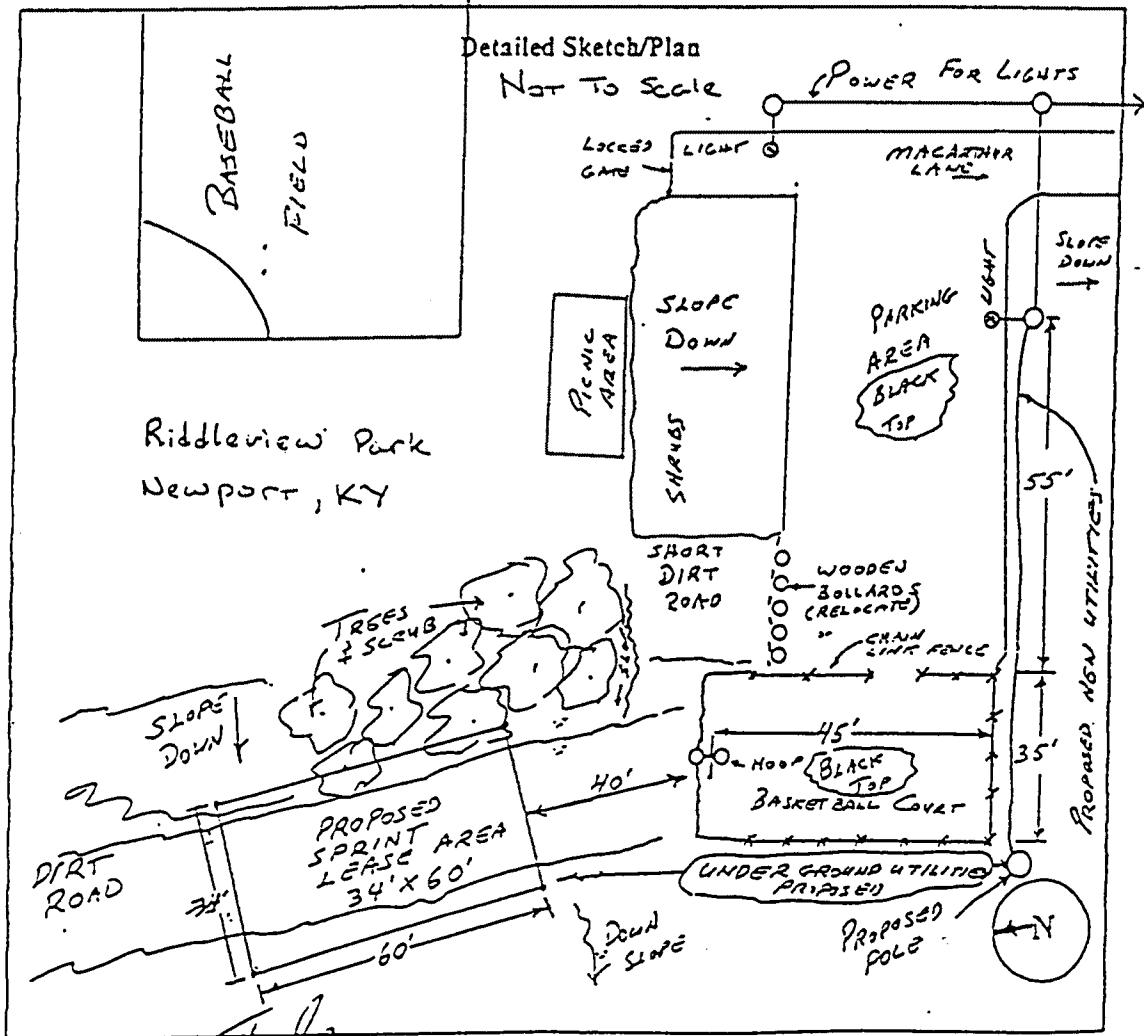 Detailed Sketch/Plan
Not To Scale
POWER FOR LIGHTS
BASEBALL
FIELD
LOCKED
GATE
LIGHT
MACARTHUR
LANE
SLOPE
DOWN
LIGHT
PARKING
AREA
BLACK
TOP
SLOPE
DOWN
PICNIC
AREA
SHRUBS
Riddleview Park
Newport, KY
55'
PROPOSED NEW UTILITIES
SHORT
DIRT
ROAD
WOODEN
BOLLARDS
(RELOCATE)
CHAIN
LINK FENCE
TREES
+ SCRUB
SLOPE
SLOPE
DOWN
45'
35'
HOOP
BLACK
TOP
BASKETBALL COURT
40'
PROPOSED
SPRINT
LEASE AREA
34' X 60'
DIRT
ROAD
34'
60'
UNDER GROUND UTILITIES
PROPOSED
DOWN
SLOPE
PROPOSED
POLE
N